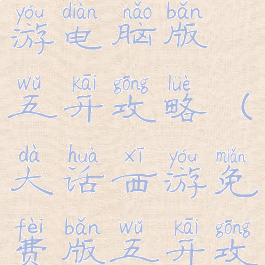 yóu diàn nǎo bǎn
游电脑版
wǔ kāi gōng lüè
五开攻略（
dà huà xī yóu miǎn
大话西游免
fèi bǎn wǔ kāi gōng
费版五开攻